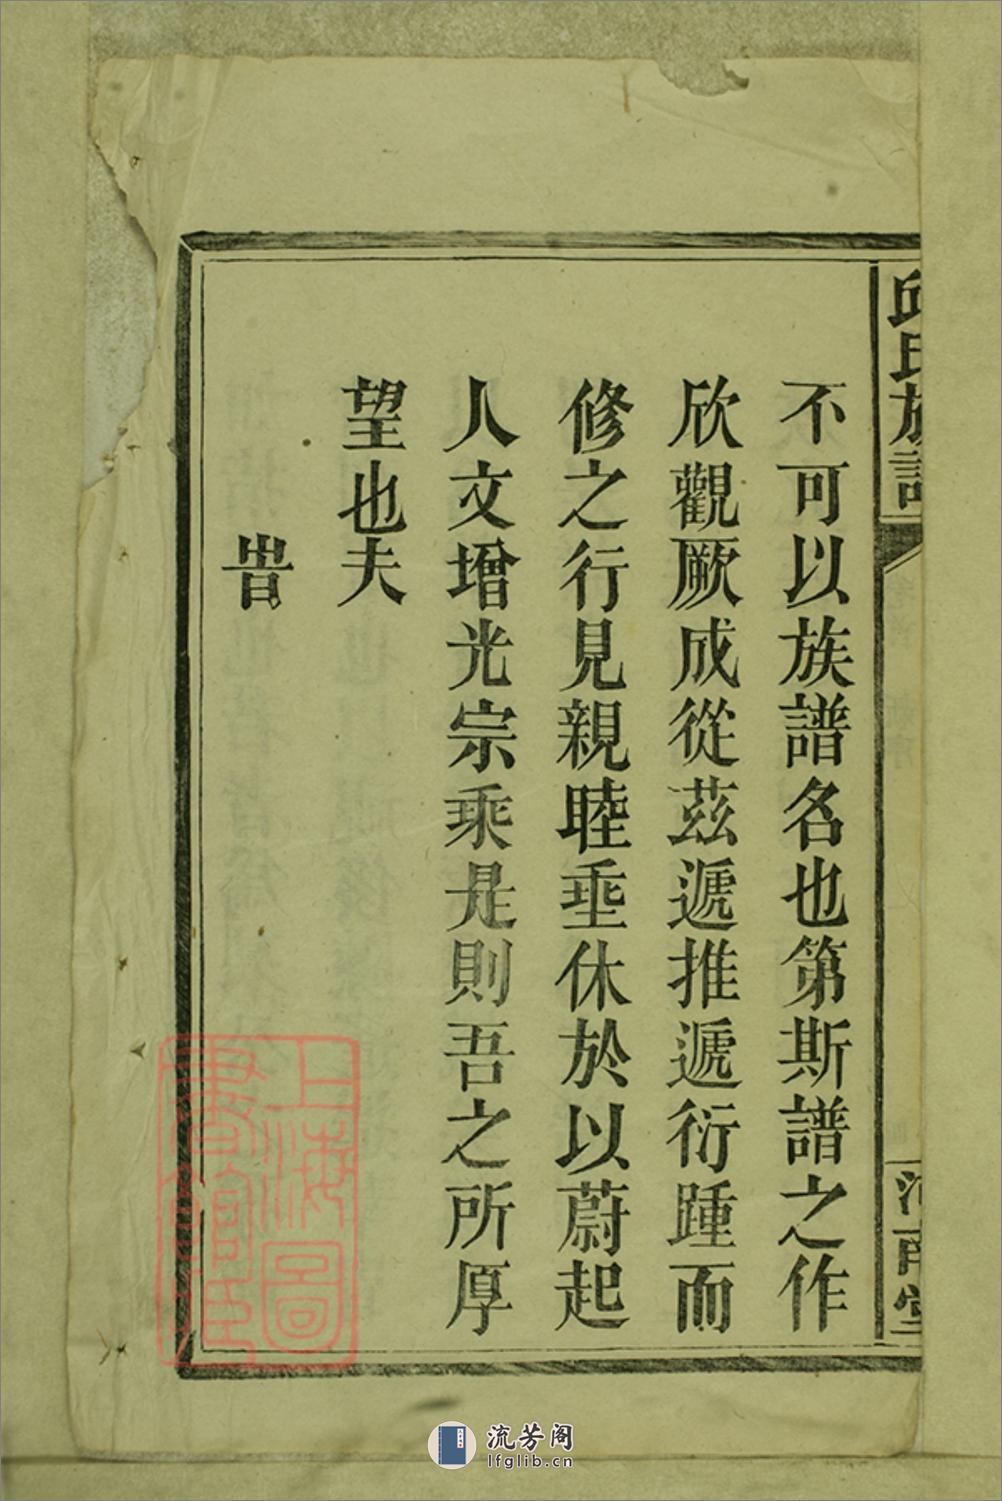 邱氏族譜
河南堂
不可以族譜名也第斯譜之作
欣觀厥成從茲遞推遞衍踵而
修之行見親睦垂休於以蔚起
人文增光宗乘是則吾之所厚
望也夫
旹
上海圖
書館臧
流芳阁
lfglib.cn